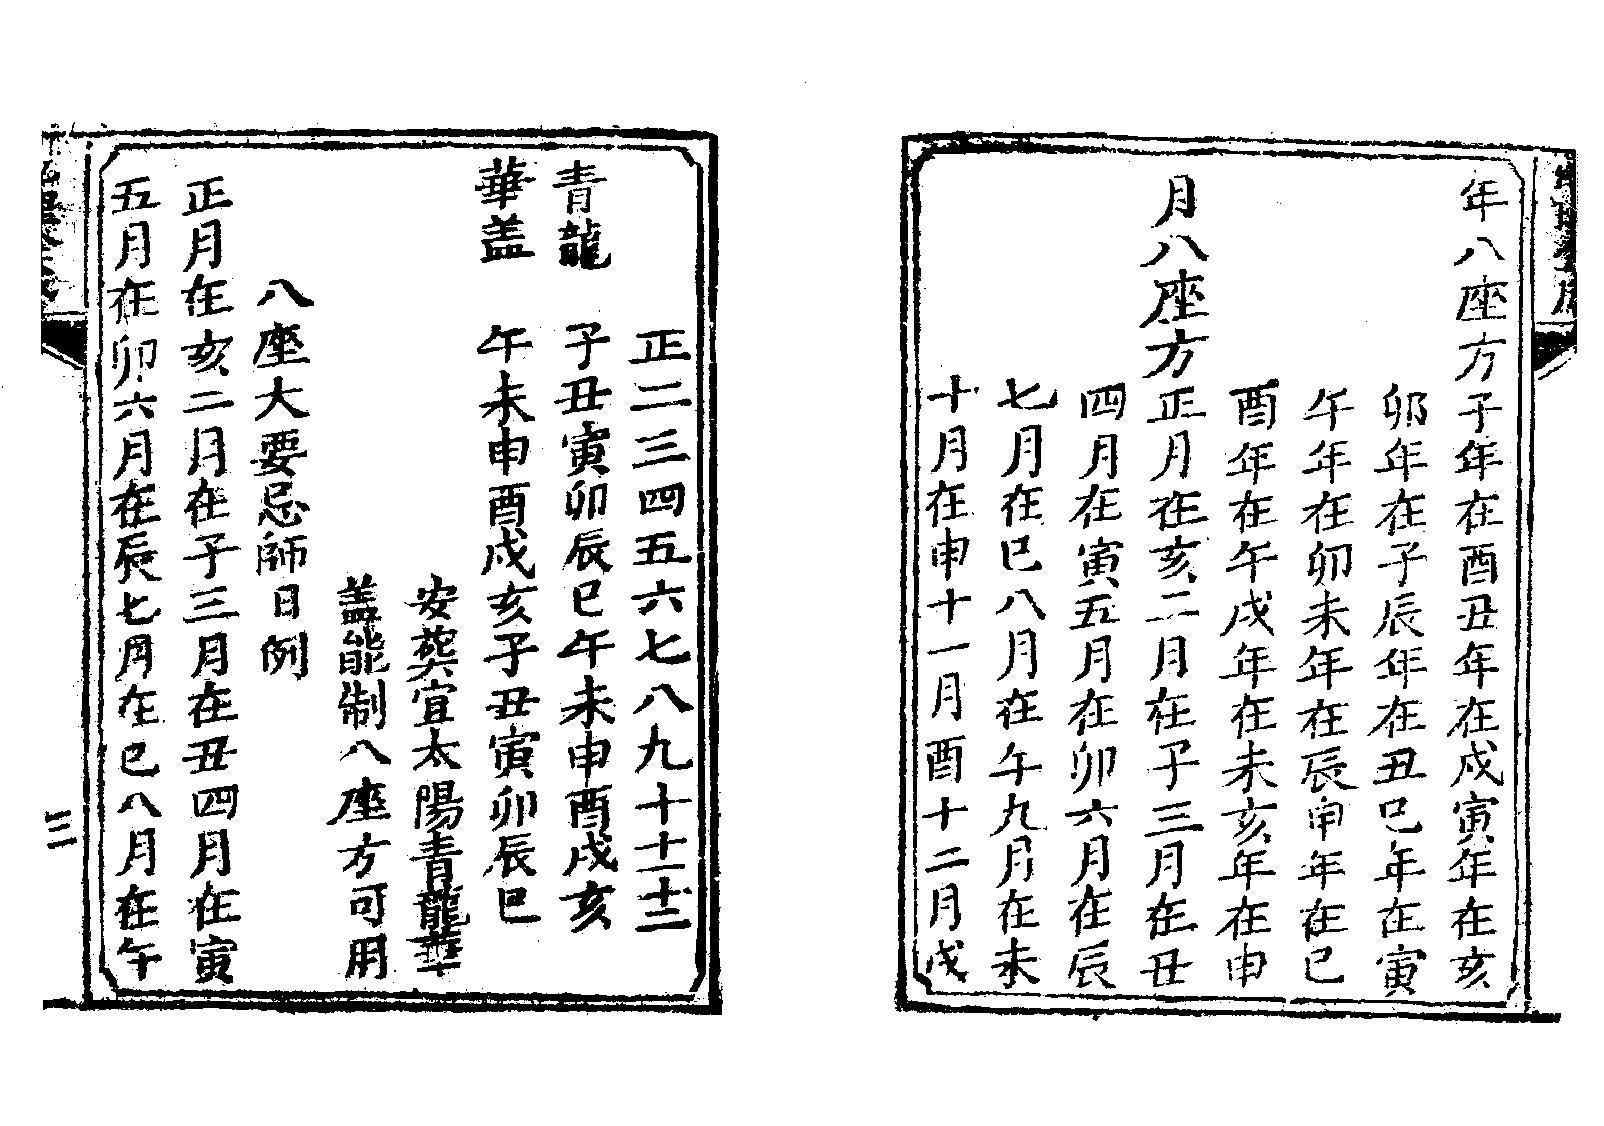 年八座方子年在酉丑年在戌寅年在亥
卯年在子辰年在丑巳年在寅
午年在卯未年在辰申年在巳
酉年在午戌年在未亥年在申
月八座方正月在亥二月在子三月在丑
四月在寅五月在卯六月在辰
七月在巳八月在午九月在未
十月在申十一月酉十二月戌
正二三四五六七八九十十一十二
青龍 子丑寅卯辰巳午未申酉戌亥
華盖 午未申酉戌亥子丑寅卯辰巳
安葬宜太陽青龍華
盖能制八座方可用
八座大要忌師日例
正月在亥二月在子三月在丑四月在寅
五月在卯六月在辰七月在巳八月在午
三